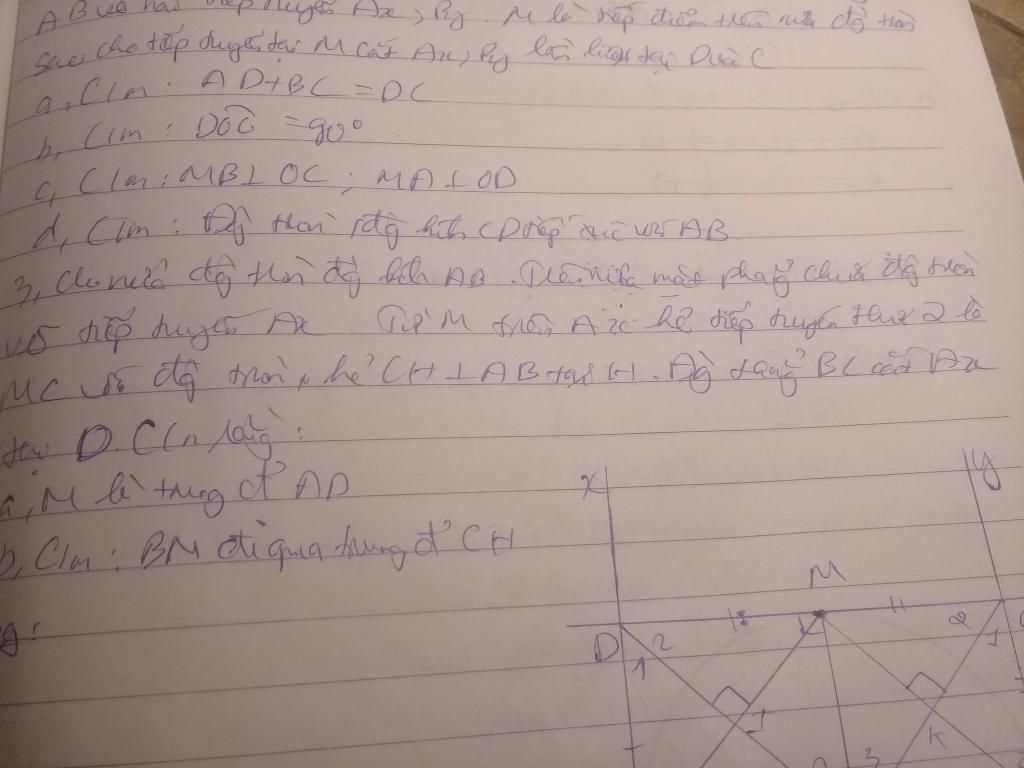 AB và hai tiếp tuyến Ax, By. M là tiếp điểm trên nửa đg tròn
sao cho tiếp tuyến tại M cắt Ax, By lần lượt tại D và C
a, C/m: AD+BC=DC
b, C/m: DÔC =90°
c, C/m: MB⊥ OC; MA⊥OD
d, C/m: Đg tròn đg kính CD tiếp xúc với AB
3, Cho nửa đg tròn đg kính AB. Trên nửa mặt phẳg chứa đg tròn
vẽ tiếp tuyến Ax. Từ M trên Ax kẻ tiếp tuyến thứ 2 là
MC với đg tròn, kẻ CH⊥AB tại H. Đg thẳg BC cắt Ax
tại D. C/m rằg:
a, M là trug đ' AD
b, C/m: BM đi qua trung đ' CH
x y
M
D 2 2 1
1
I K
3